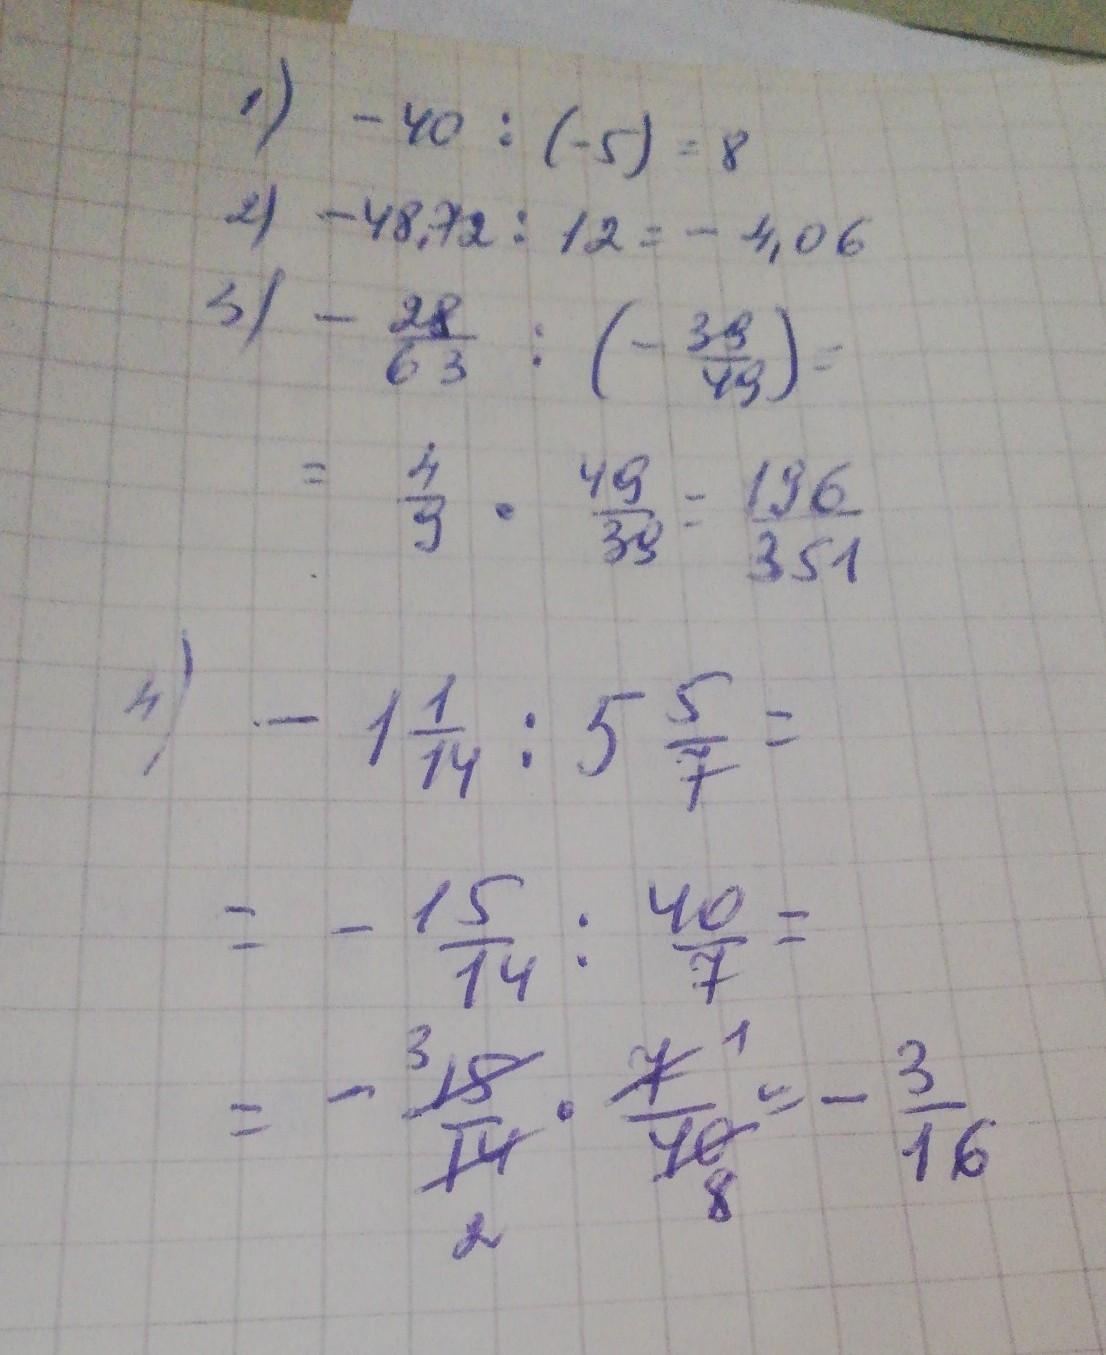 1) -40 : (-5) = 8
2) -48,72 : 12 = -4,06
3) - 28/63 : (- 39/49) =
= 4/9 · 49/39 = 196/351
4) - 1 1/14 : 5 5/7 =
= - 15/14 : 40/7 =
= - 3 15/14 2 · 7 1/40 8 = - 3/16